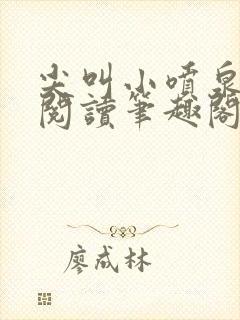 尖叫小噴泉
閱讀筆趣閣
廖成林